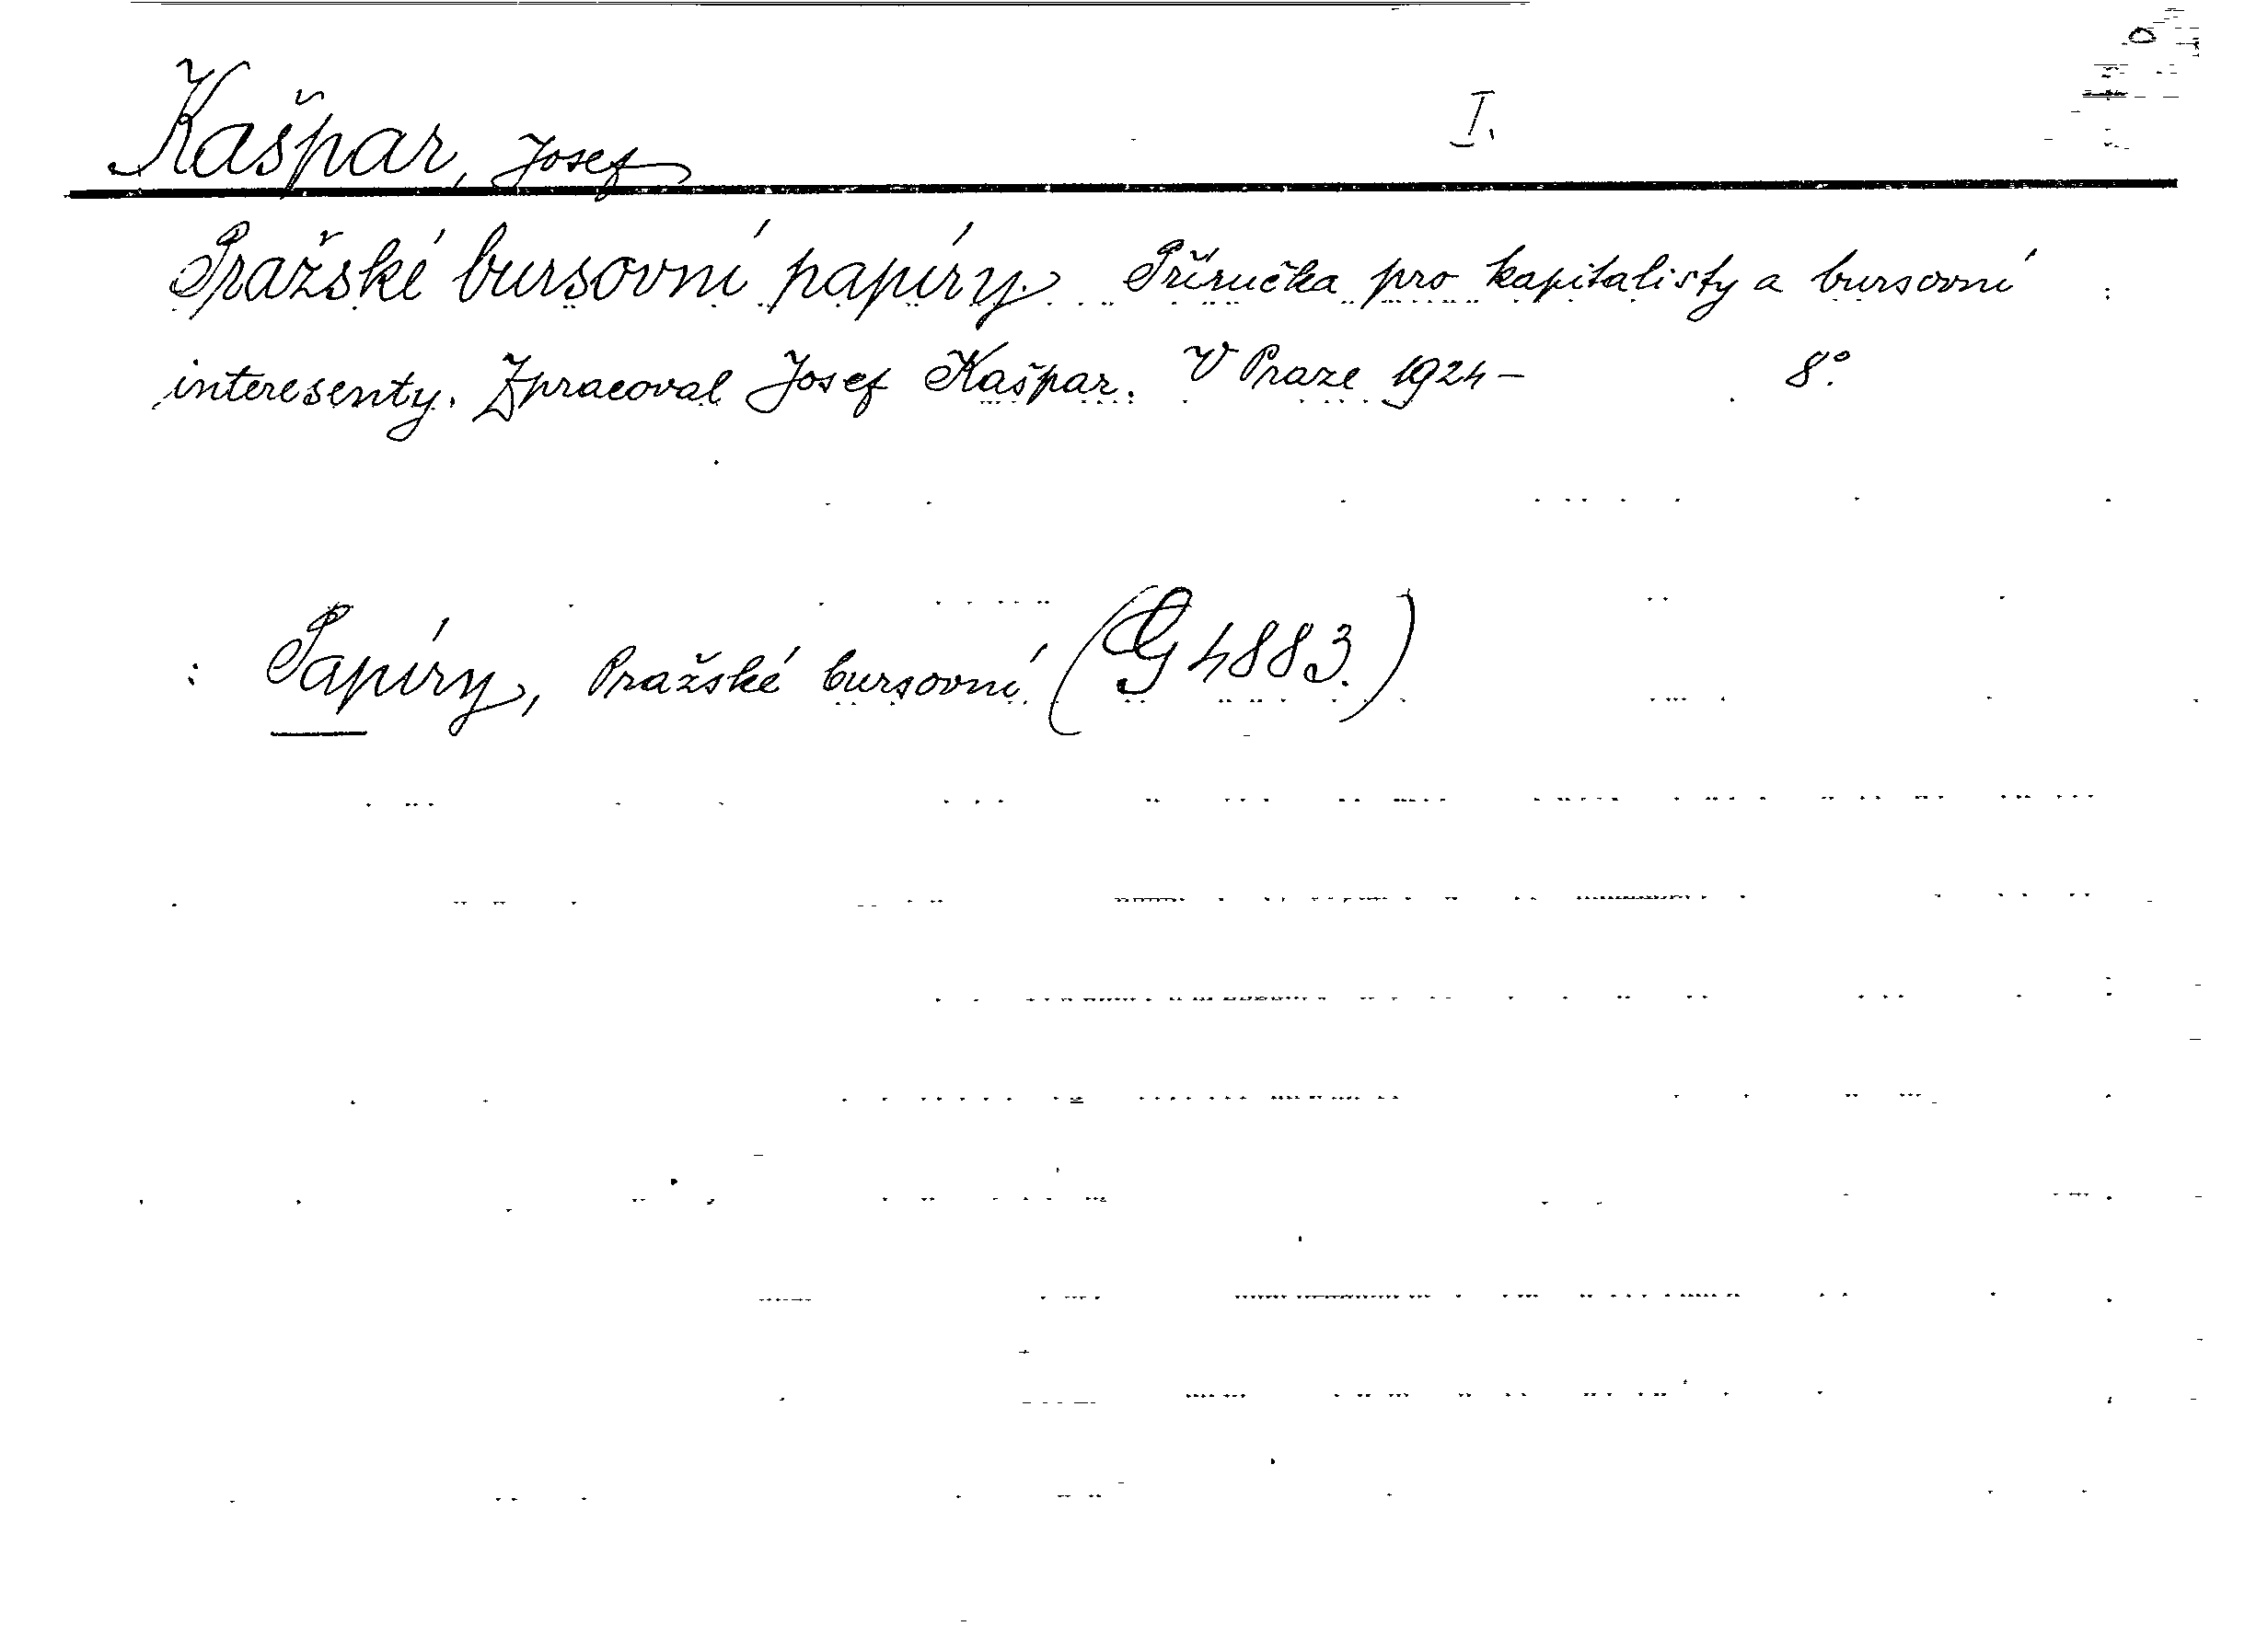 Kašpar, Josef I.
Pražské bursovní papíry. Příručka pro kapitalisty a bursovní
interesenty. Zpracoval Josef Kašpar. V Praze 1924 – 8°.
: Papíry, Pražské bursovní (G 4883.)